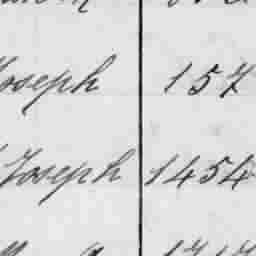 Joseph 157
Joseph 1454